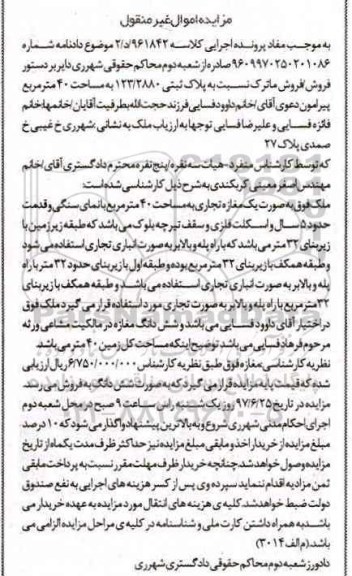 مزایده اموال غیر منقول
به موجب مفاد پرونده اجرایی کلاسه ۹۶۱۸۴۲/د/۲ موضوع دادنامه شماره
۹۶۰۹۹۷۰۲۵۰۲۰۱۰۸۶ صادره از شعبه دوم محاکم حقوقی شهرری دایر بر دستور
فروش/فروش ماترک نسبت به پلاک ثبتی ۱۲۳/۲۸۸۰ به مساحت ۴۰ مترمربع
پیرامون دعوی آقای/خانم داوود فسایی فرزند حجت الله بطرفیت آقایان/خانمها خانم
فائزه فسایی و علیرضا فسایی توجها به ارزیاب ملک به نشانی: شهرری خ غیبی خ
صمدی پلاک ۲۷
که توسط کارشناس منفرد-هیات سه نفره/پنج نفره محترم دادگستری آقای/خانم
مهندس اصغر معینی کربکندی به شرح ذیل کارشناسی شده است:
ملک فوق به صورت یک مغازه تجاری به مساحت ۴۰ مترمربع بانمای سنگی و قدمت
حدود ۵ سال و اسکلت فلزی و سقف تیرچه بلوک می باشد که طبقه زیرزمین با
زیربنای ۳۲ متر می باشد که با راه پله و بالابر به صورت انباری تجاری استفاده می شود
و طبقه همکف با زیربنای ۳۲ مترمربع بوده و طبقه اول با زیربنای حدود ۳۲ متر با راه
پله و بالابر به صورت انباری تجاری استفاده می باشد. و طبقه همکف با زیربنای
۳۲ مترمربع با راه پله و بالابر به صورت تجاری مورد استفاده قرار می گیرد ملک فوق
در اختیار آقای داوود فسایی می باشد و شش دانگ مغازه در مالکیت مشاعی ورثه
مرحوم فرهاد فسایی می باشد توضیح اینکه مساحت کل زمین ۴۰ متر می باشد.
نظریه کارشناسی: مغازه فوق طبق نظریه کارشناس ۶/۷۵۰/۰۰۰/۰۰۰ ریال ارزیابی
شده که قیمت پایه مزایده قرار می گیرد که به صورت شش دانگ به فروش می رسد.
مزایده در تاریخ ۹۷/۶/۲۵ روز یک شنبه راس ساعت ۹ صبح در محل شعبه دوم
اجرای احکام مدنی شهرری شروع و به بالاترین پیشنهاد واگذار می شود که ۱۰ درصد
مبلغ مزایده از خریدار اخذ و مابقی مبلغ مزایده نیز حداکثر ظرف مدت یکماه از تاریخ
مزایده وصول خواهد شد. چنانچه خریدار ظرف مهلت مقرر نسبت به پرداخت مابقی
ثمن مزایده اقدام ننماید سپرده وی پس از کسر هزینه های اجرایی به نفع صندوق
دولت ضبط خواهد شد. کلیه ی هزینه های انتقال مورد مزایده به عهده خریدار می
باشد به همراه داشتن کارت ملی و شناسنامه در کلیه ی مراحل مزایده الزامی می
باشد. (م الف ۳۰۱۴)
دادورز شعبه دوم محاکم حقوقی دادگستری شهرری